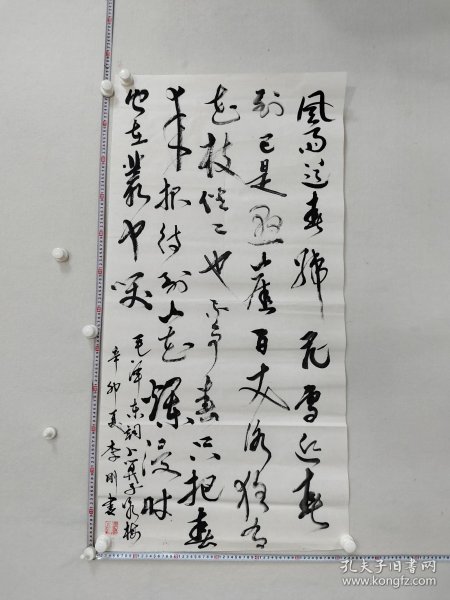 風雨送春歸飛雪迎春
到已是懸崖百丈冰犹有
花枝俏〻也不争春只把春
来报待到山花爛漫时
她在叢中笑
毛泽东词卜算子咏梅
辛卯夏李刚書
孔夫子旧书网
www.kongfz.com